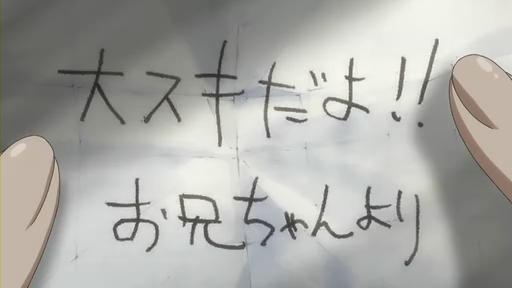 大スキだよ!!
お兄ちゃんより